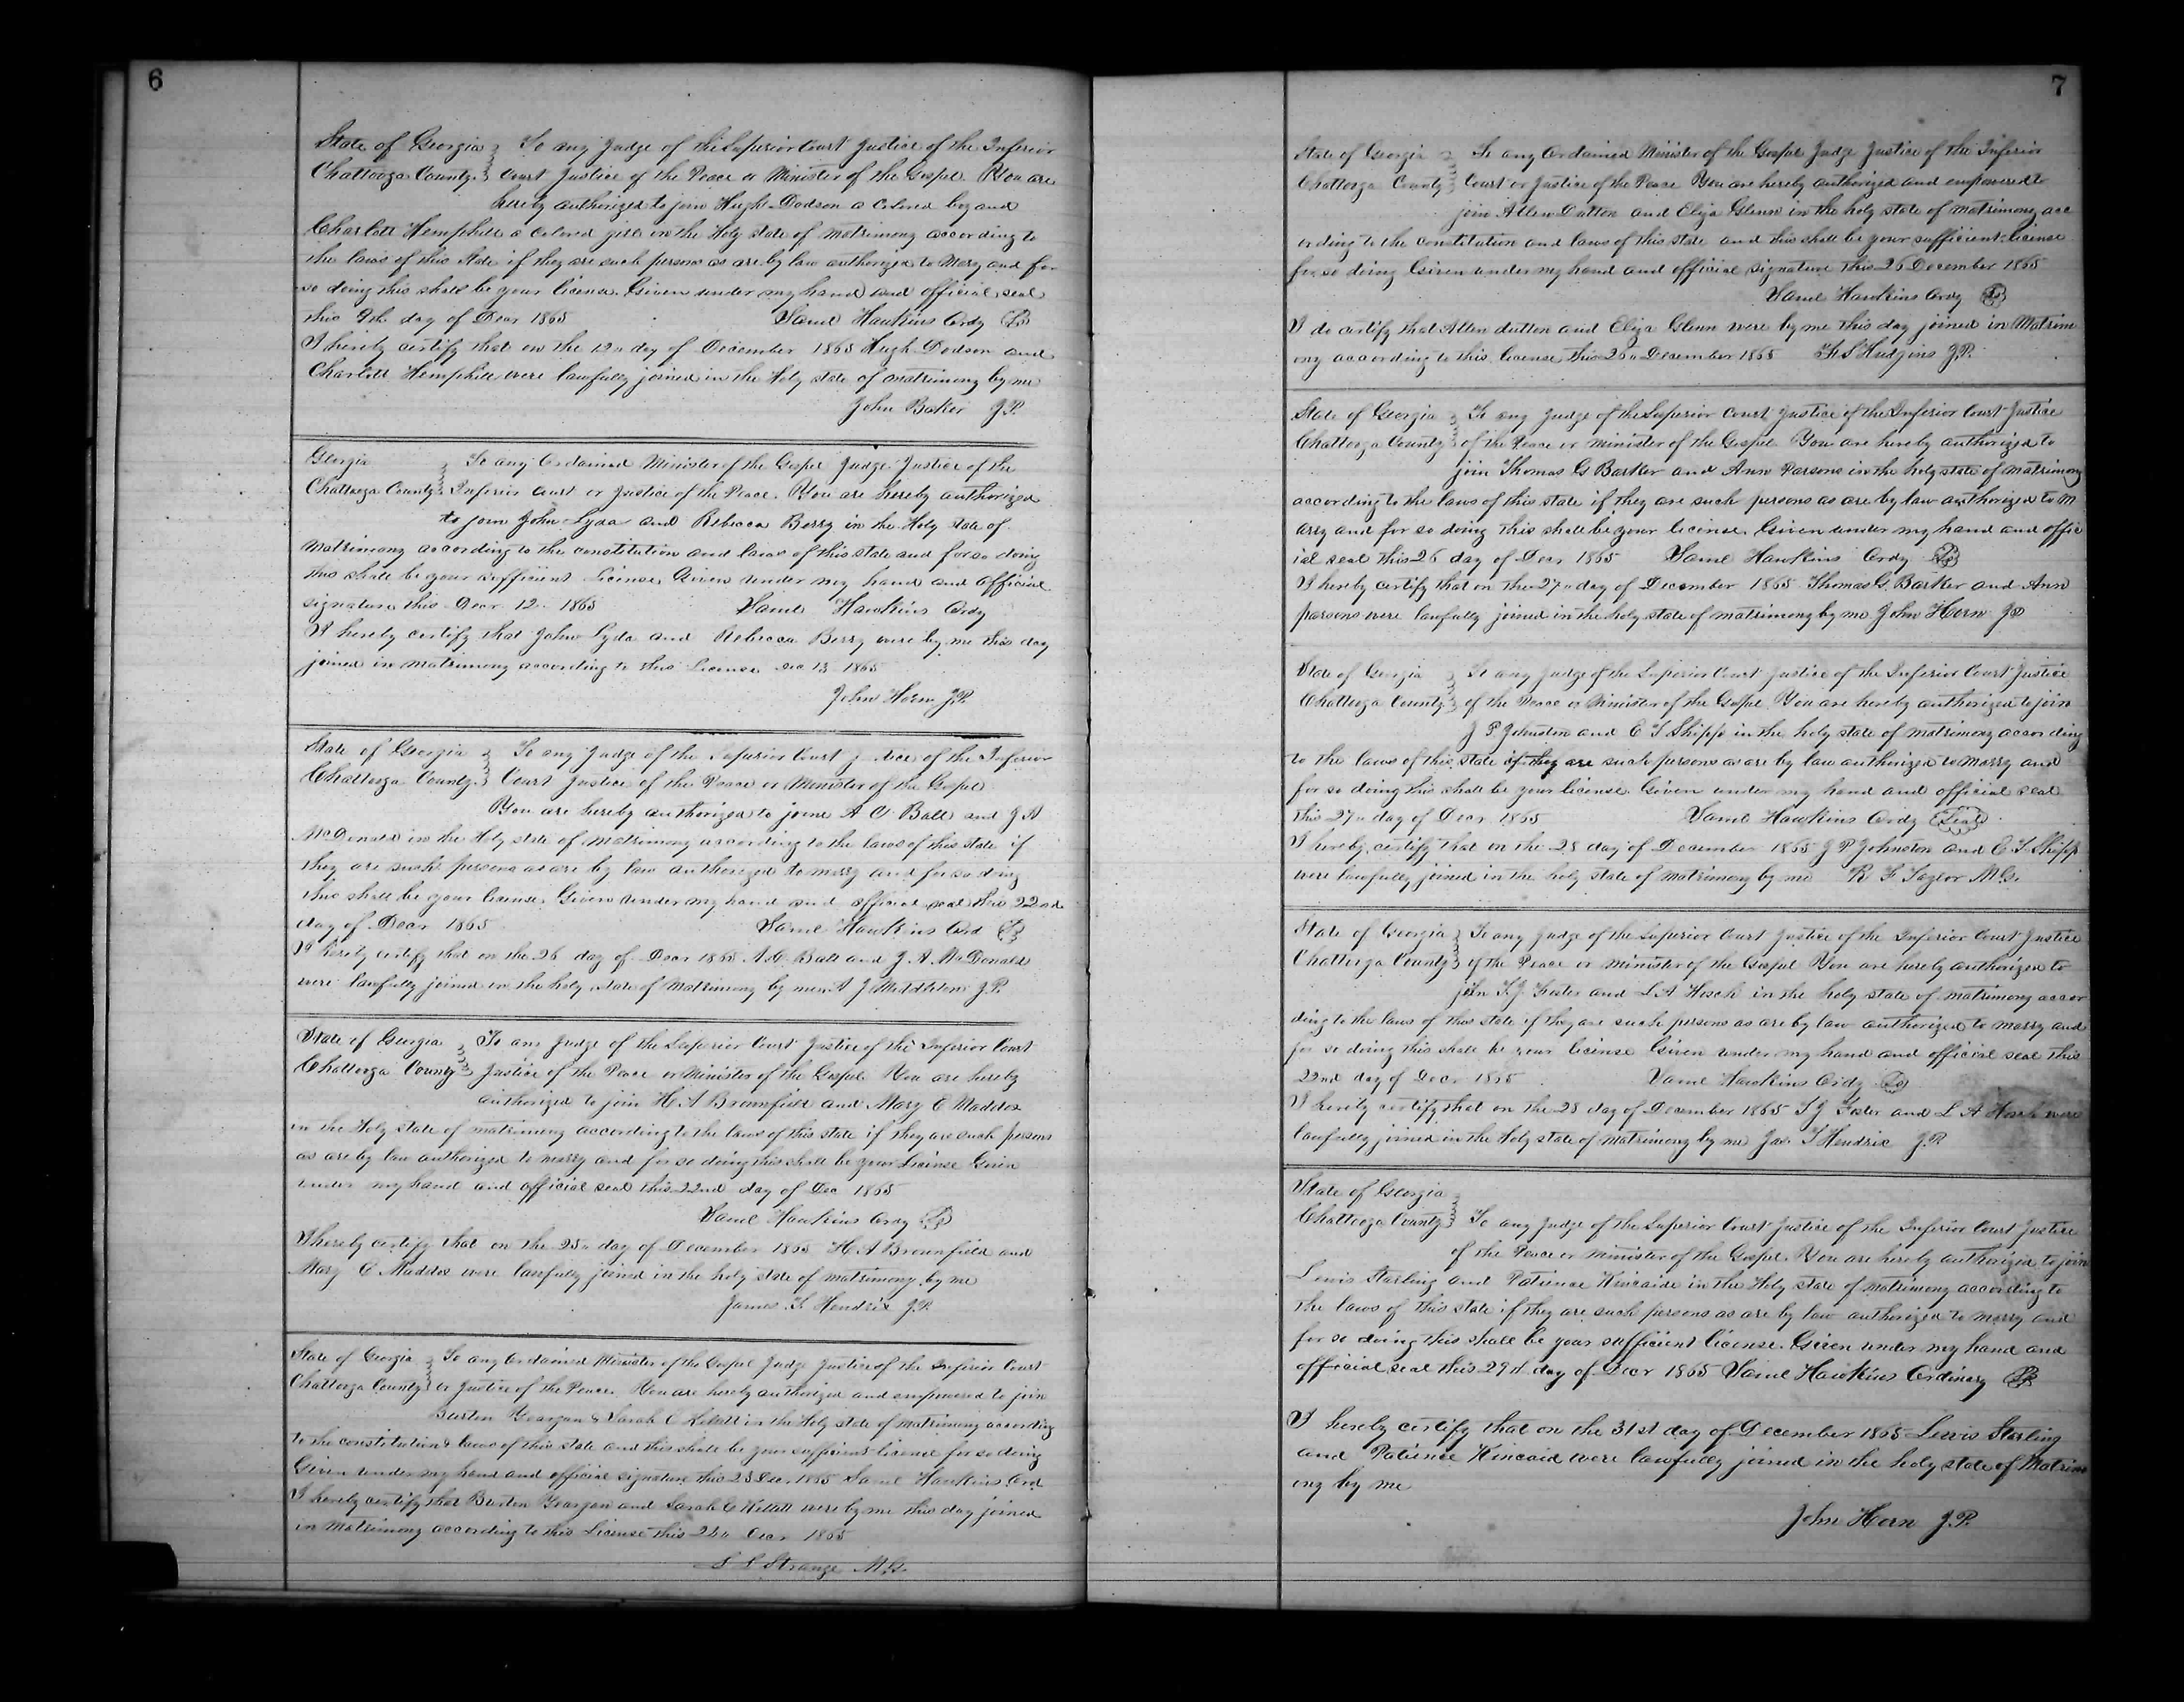 6
State of Georgia To any Judge of the Superior Court Justice of the Inferior
Chattooga County Court Justice of the Peace or Minister of the Gospel You are
hereby authorized to join Hugh Dodson a Colored boy and
Charlott Hemphill a Colored girl in the Holy state of Matrimony according to
the laws of this State if they are such persons as are by law authorized to Mary and for
so doing this shall be your license. Given under my hand and official seal
this 9th day of Decr 1865 Saml Hawkins Ordy LS
I hereby certify that on the 12" day of December 1865 Hugh Dodson and
Charlott Hemphill were lawfully joined in the Holy state of matrimony by me
John Baker J.P.
Georgia To any Ordained Minister of the Gospel Judge Justice of the
Chattooga County Inferior Court or Justice of the Peace. You are hereby authorized
to join John Lyda and Rebecca Berry in the Holy state of
Matrimony according to the constitution and laws of this state and for so doing
this shall be your sufficient License Given under my hand and official
signature this Decr 12 1865 Saml Hawkins Ordy
I hereby certify that John Lyda and Rebecca Berry were by me this day
joined in matrimony according to this License Dec 13 1865
John Horn J.P.
State of Georgia To any Judge of the Superior Court Justice of the Inferior
Chattooga County Court Justice of the Peace or Minister of the Gospel
You are hereby authorized to join A C Ball and J A
McDonald in the Holy state of Matrimony according to the laws of this state if
they are such persons as are by law authorized to marry and for so doing
this shall be your license. Given under my hand and official seal this 22nd
day of Decr 1865 Saml Hawkins Ord LS
I hereby certify that on the 26 day of Decr 1865 A.C. Ball and J. A. McDonald
were lawfully joined in the holy state of Matrimony by me A J Middleton J.P.
State of Georgia To any Judge of the Superior Court Justice of the Inferior Court
Chattooga County Justice of the Peace or Minister of the Gospel You are hereby
authorized to join H. A Brownfield and Mary C Maddox
in the Holy state of matrimony according to the laws of this state if they are such persons
as are by law authorized to marry and for so doing this shall be your License Given
under my hand and official seal this 22nd day of Dec 1865
Saml Hawkins Ordy LS
I hereby certify that on the 25" day of December 1865 H. A Brownfield and
Mary C Maddox were lawfully joined in the holy state of matrimony by me
James T Hendrix J.P.
State of Georgia To any Ordained Minister of the Gospel Judge Justice of the Inferior Court
Chattooga County or Justice of the Peace. You are hereby authorized and empowered to join
Burton Yeargan & Sarah C in the Holy state of matrimony according
to the constitution & laws of this state and this shall be your sufficient license for so doing
Given under my hand and official signature this 23 Dec 1865 Saml Hawkins Ord
I hereby certify that Burton Yeargan and Sarah C were by me this day joined
in Matrimony according to this License this Decr 1865
S L Strange M.G.
7
State of Georgia To any Ordained Minister of the Gospel Judge Justice of the Inferior
Chattooga County Court or Justice of the Peace You are hereby authorized and empowered to
join Allen Dutton and Eliza Glenn in the holy state of matrimony acc
ording to the constitution and laws of this state and this shall be your sufficient license
for so doing Given under my hand and official signature this 26 December 1865
Saml Hawkins Ordy LS
I do certify that Allen dutton and Eliza Glenn were by me this day joined in Matrim
ony according to this license this 26" December 1865 Hudgins J.P.
State of Georgia To any Judge of the Superior Court Justice of the Inferior Court Justice
Chattooga County of the Peace or minister of the Gospel You are hereby authorized to
join Thomas G Barker and Ann Parsons in the holy state of matrimony
according to the laws of this state if they are such persons as are by law authorized to m
arry and for so doing this shall be your license. Given under my hand and offic
ial seal this 26 day of Decr 1865 Saml Hawkins Ordy LS
I hereby certify that on the 27" day of December 1865 Thomas G. Barker and Ann
parsons were lawfully joined in the holy state of matrimony by me John Horn JP
State of Georgia To any Judge of the Superior Court Justice of the Inferior Court Justice
Chattooga County of the Peace or Minister of the Gospel You are hereby authorized to join
J P Johnston and C T Shipp in the holy state of matrimony according
to the laws of this state if they are such persons as are by law authorized to marry and
for so doing this shall be your license. Given under my hand and official seal
this 27" day of Decr 1865 Saml Hawkins Ordy Seal
I hereby certify that on the 28 day of December 1865 J P Johnston and C T Shipp
were lawfully joined in the holy state of matrimony by me R F Taylor M.G.
State of Georgia To any Judge of the Superior Court Justice of the Inferior Court Justice
Chattooga County of the Peace or minister of the Gospel You are hereby authorized to
join T. J. Foster and L A Hosch in the holy state of matrimony accor
ding to the laws of this state if they are such persons as are by law authorized to marry and
for so doing this shall be your license Given under my hand and official seal this
22nd day of Decr 1865 Saml Hawkins Ordy LS
I hereby certify that on the 28 day of December 1865 T J Foster and L A Hosch were
lawfully joined in the Holy state of matrimony by me Jas. T Hendrix J.P.
State of Georgia
Chattooga County To any Judge of the Superior Court Justice of the Inferior Court Justice
of the Peace or minister of the Gospel. You are hereby authorized to join
Lewis Starling and Patience Kincaide in the Holy state of matrimony according to
the laws of this state if they are such persons as are by law authorized to marry and
for so doing this shall be your sufficient license. Given under my hand and
official seal this 29th day of Decr 1865 Saml Hawkins Ordinary LS
I hereby certify that on the 31st day of December 1865 Lewis Starling
and Patience Kincaid were lawfully joined in the holy state of Matrim
ony by me
John Horn J.P.